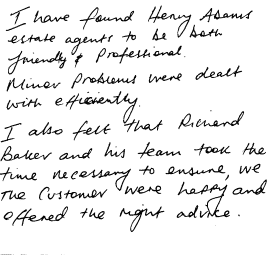 I have found Henry Adams
estate agents to be both
friendly & Professional.
Minor Problems were dealt
with efficiently.
I also felt that Richard
Baker and his team took the
time necessary to ensure, we
The Customer were happy and
offered the right advice.